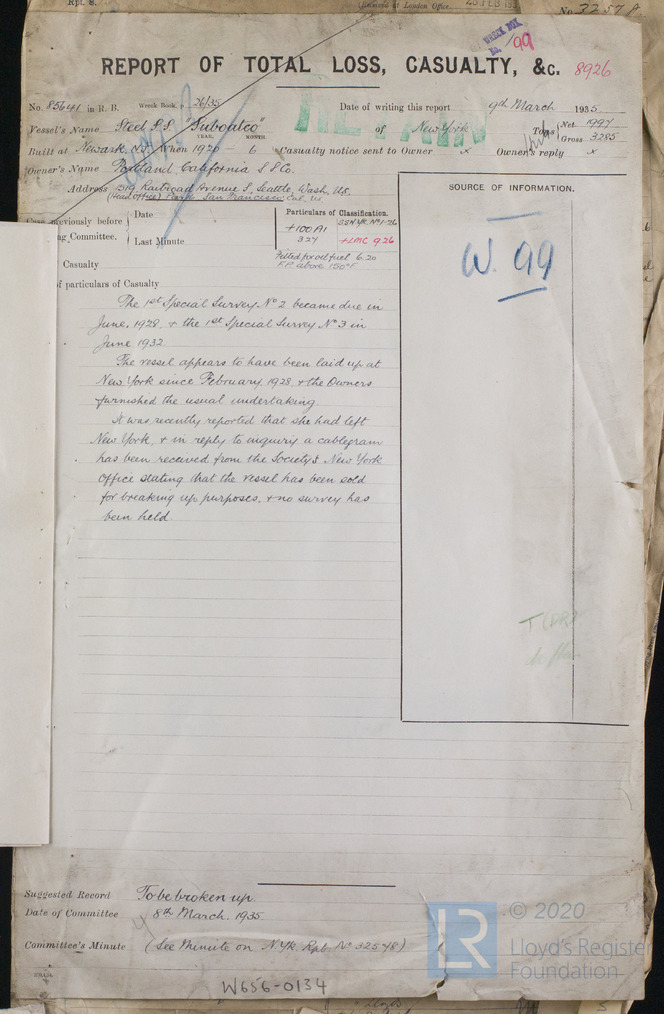 Rpt. 8.
Received at London Office
No. 3257A
WRECK BOX
No. 199
REPORT OF TOTAL LOSS, CASUALTY, &c. 8926
No. 85641 in R. B. Wreck Book, p 26/35 Date of writing this report 9th March 1935
RETAIN
Vessel's Name Steel S.S. "Suboatco" of New York Tons Net 1997 Gross 3285
YEAR. MONTH
Built at Newark N.J. When 1920 - 6 Casualty notice sent to Owner x Owner's reply x
Owner's Name Portland California S S Co.
Address 1519 Railroad Avenue S, Seattle, Wash, U.S.
(Head office) San Francisco Cal. U.S.
SOURCE OF INFORMATION.
W. 99
previously before
ng Committee.
Date
Last Minute
Particulars of Classification.
+100A1
3 27
SSNYk No1-26
+LMC 9 26
Casualty
Fitted for oil fuel 6.20
F.P. above 150°F.
f particulars of Casualty
The 1st Special Survey No 2 became due in
June, 1928, & the 1st Special Survey No 3 in
June 1932.
The vessel appears to have been laid up at
New York since February 1928 & the Owners
furnished the usual undertaking.
It was recently reported that she had left
New York, & in reply to inquiry a cablegram
has been received from the Society's New York
Office stating that the vessel has been sold
for breaking up purposes, & no survey has
been held.
Suggested Record To be broken up.
Date of Committee 8th March, 1935.
Committee's Minute (See Minute on NYk Rpt No 32548)
W656-0134
LR
© 2020
Lloyd's Register
Foundation